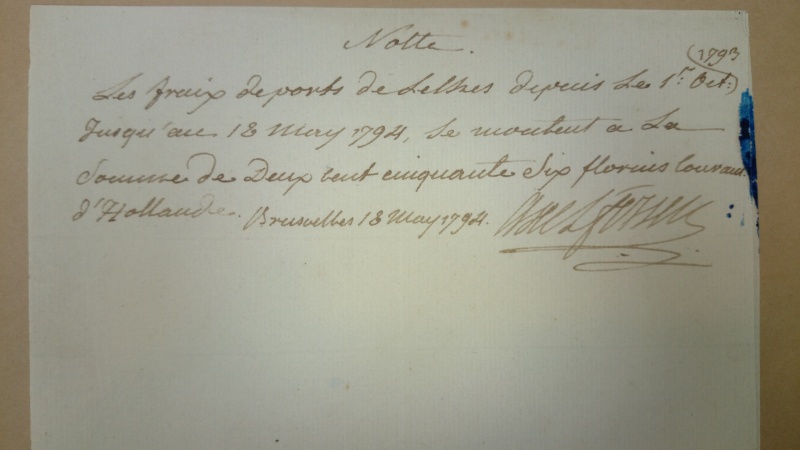 Notte.
(1793
Les fraix de ports de Lettres depuis Le 1r. Oct:)
Jusqu'au 18 May 1794, se montent a La
Somme de Deux Cent cinquante Six florins Courant
d'Hollande. Bruxelles 18 May 1794. Axel Fersen